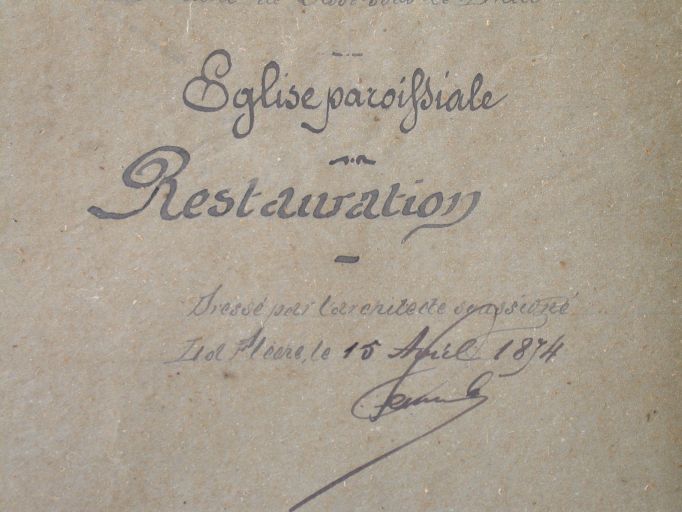 Eglise paroissiale
Restauration
Dressé par l'architecte soussigné
La Flèche, le 15 Avril 1874